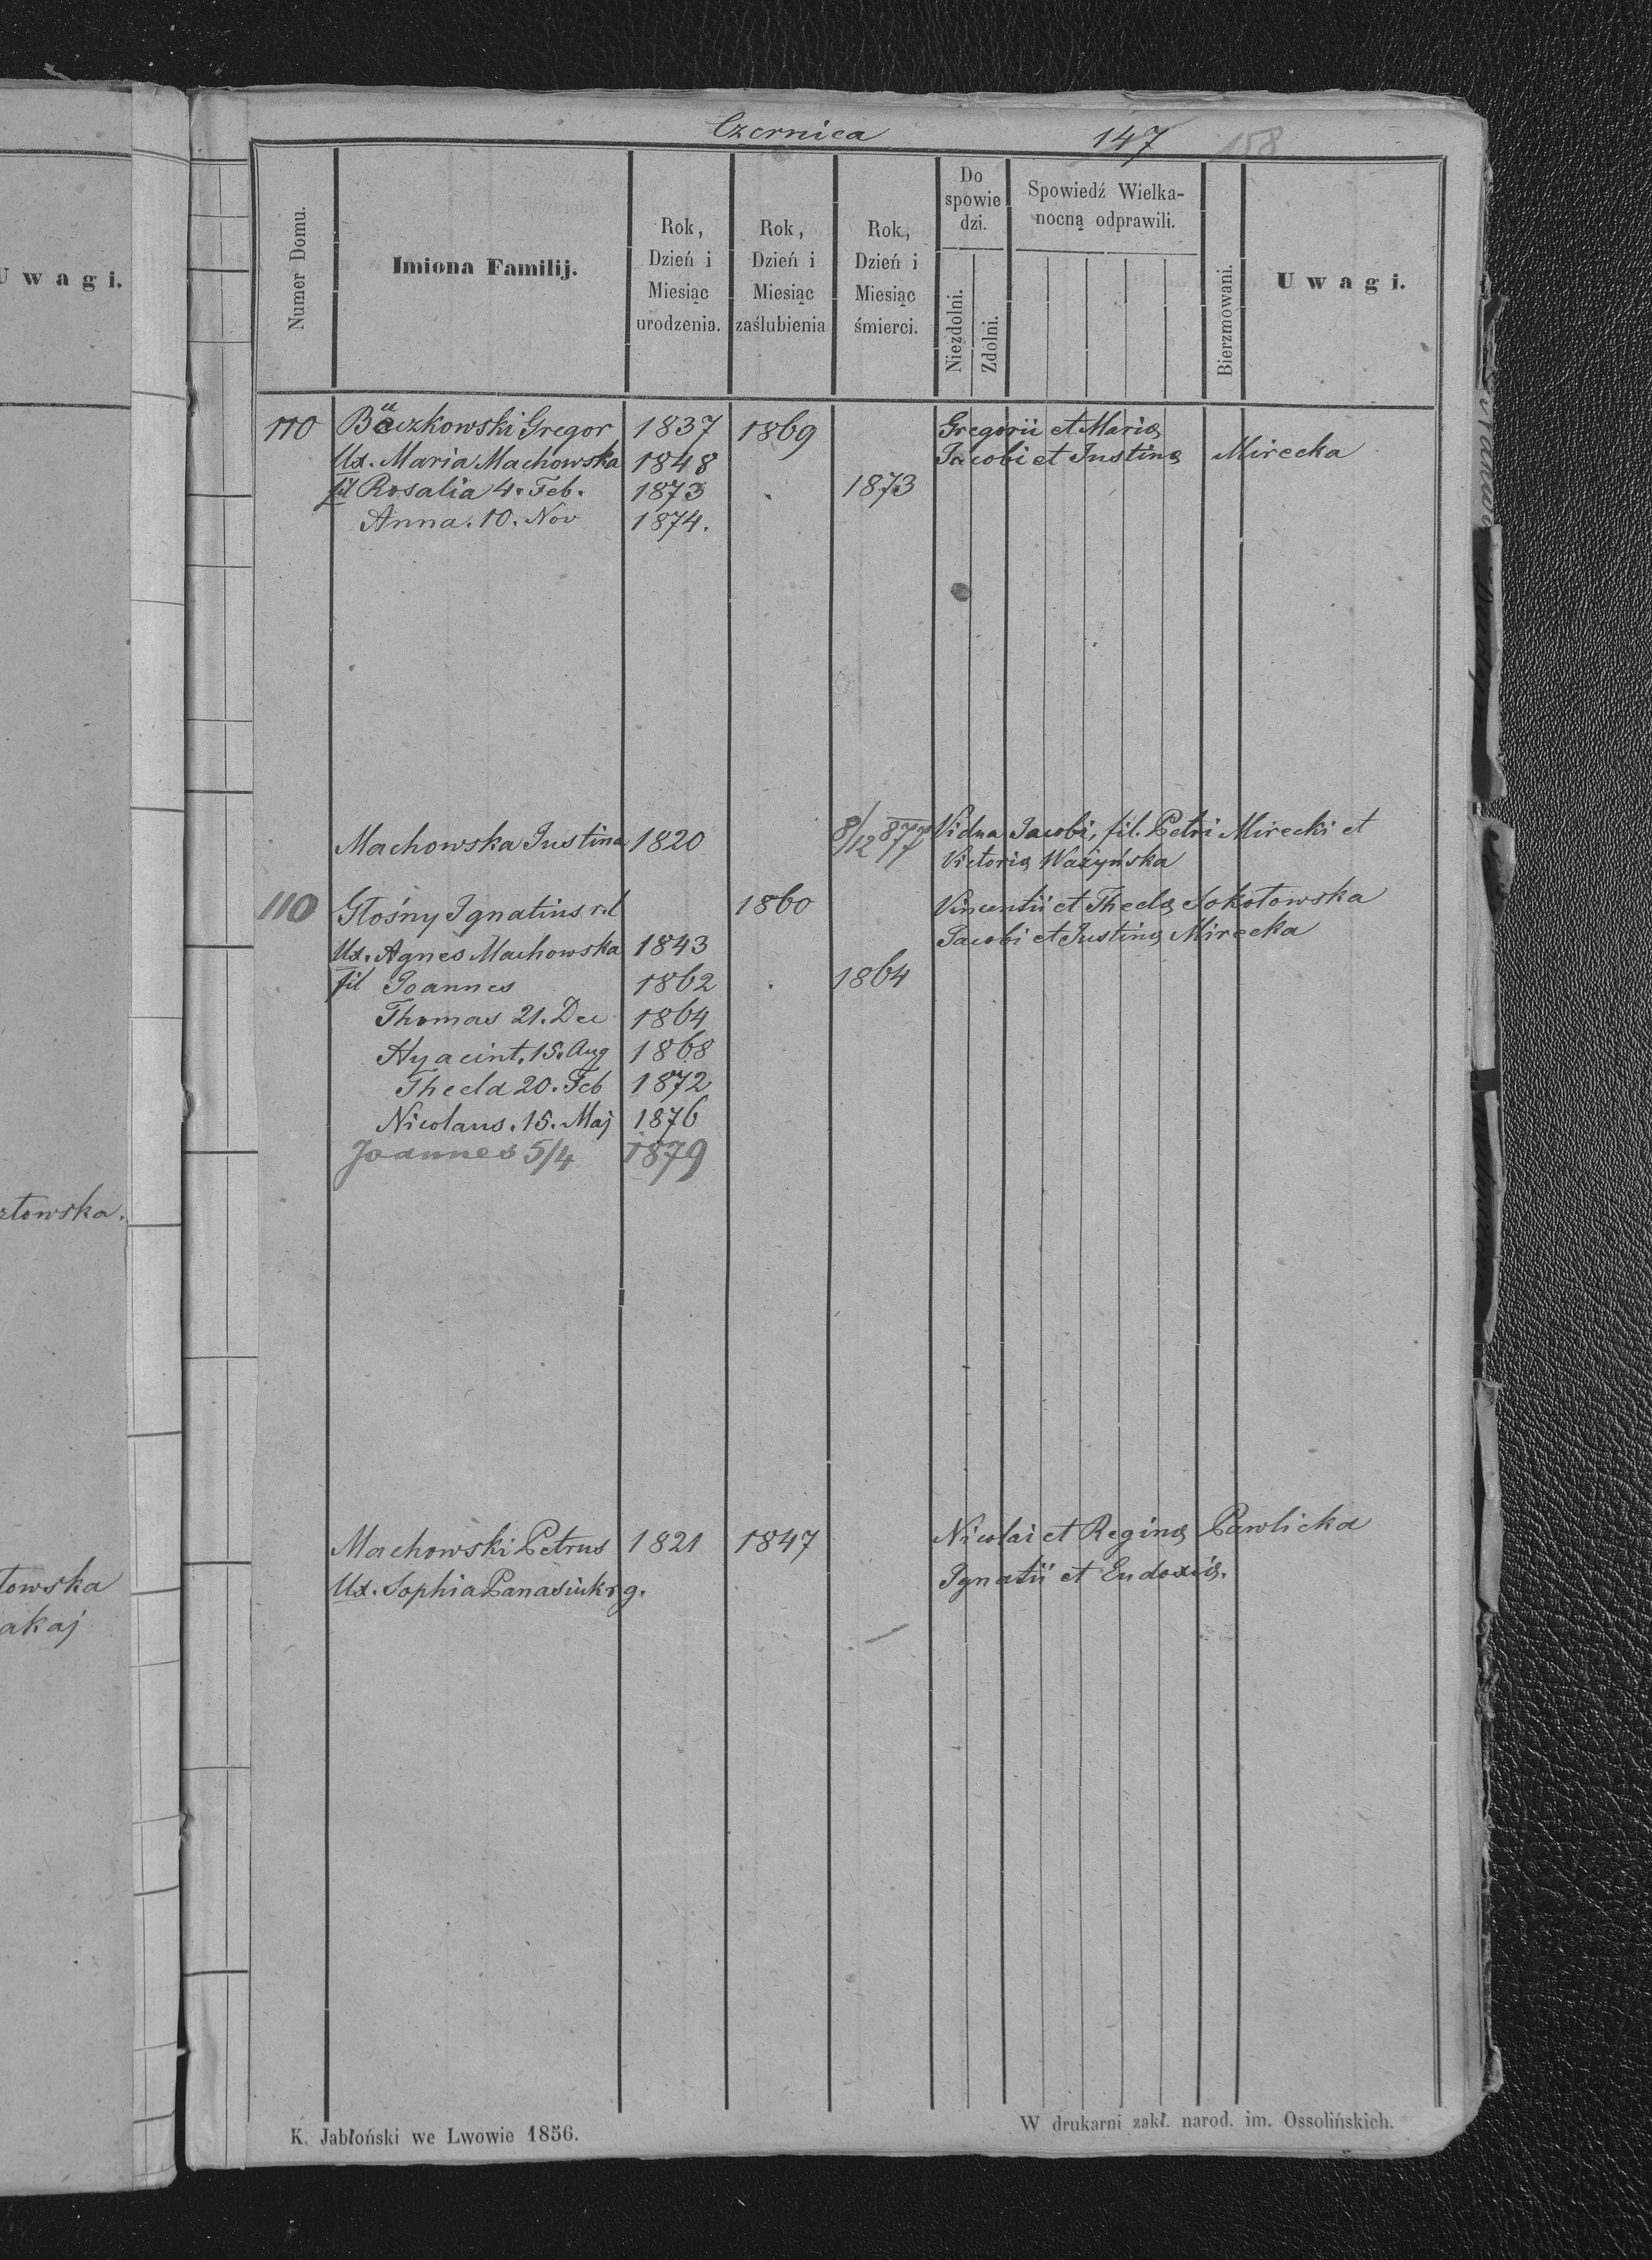 Czernica 147 158
U w a g i.
Numer Domu.
Imiona Familij.
Rok, Dzień i Miesiąc urodzenia.
Rok, Dzień i Miesiąc zaślubienia
Rok, Dzień i Miesiąc śmierci.
Do spowie dzi.
Niezdolni.
Zdolni.
Spowiedź Wielka-
nocną odprawili.
Bierzmowani.
U w a g i.
110 Buczkowski Gregor 1837 1869 Gregorii et Maria
Ux. Maria Machowska 1848 Jacobi et Justina Mirecka
fil Rosalia 4. Feb. 1873 1873
Anna. 10. Nov 1874.
Machowska Justina 1820 8/12 877 Vidua Jacobi, fil. Petri Mirecki et
Victoria Ważyńska
110 Głośny Ignatius r.l 1860 Vincentii et Thecla Sokołowska
Ux. Agnes Machowska 1843 Jacobi et Justina Mirecka
fil Joannes 1862 1864
Thomas 21. Dec 1864
Hyacint. 15. Aug 1868
Thecla 20. Feb 1872
Nicolaus. 15. Maj 1876
Joannes 5/4 1879
Machowski Petrus 1821 1847 Nicolai et Regina Pawlicka
Ux. Sophia Panasiuk r g. Ignatii et Eudoxia.
ztowska.
towska
akaj
K. Jabłoński we Lwowie 1856.
W drukarni zakł. narod. im. Ossolińskich.